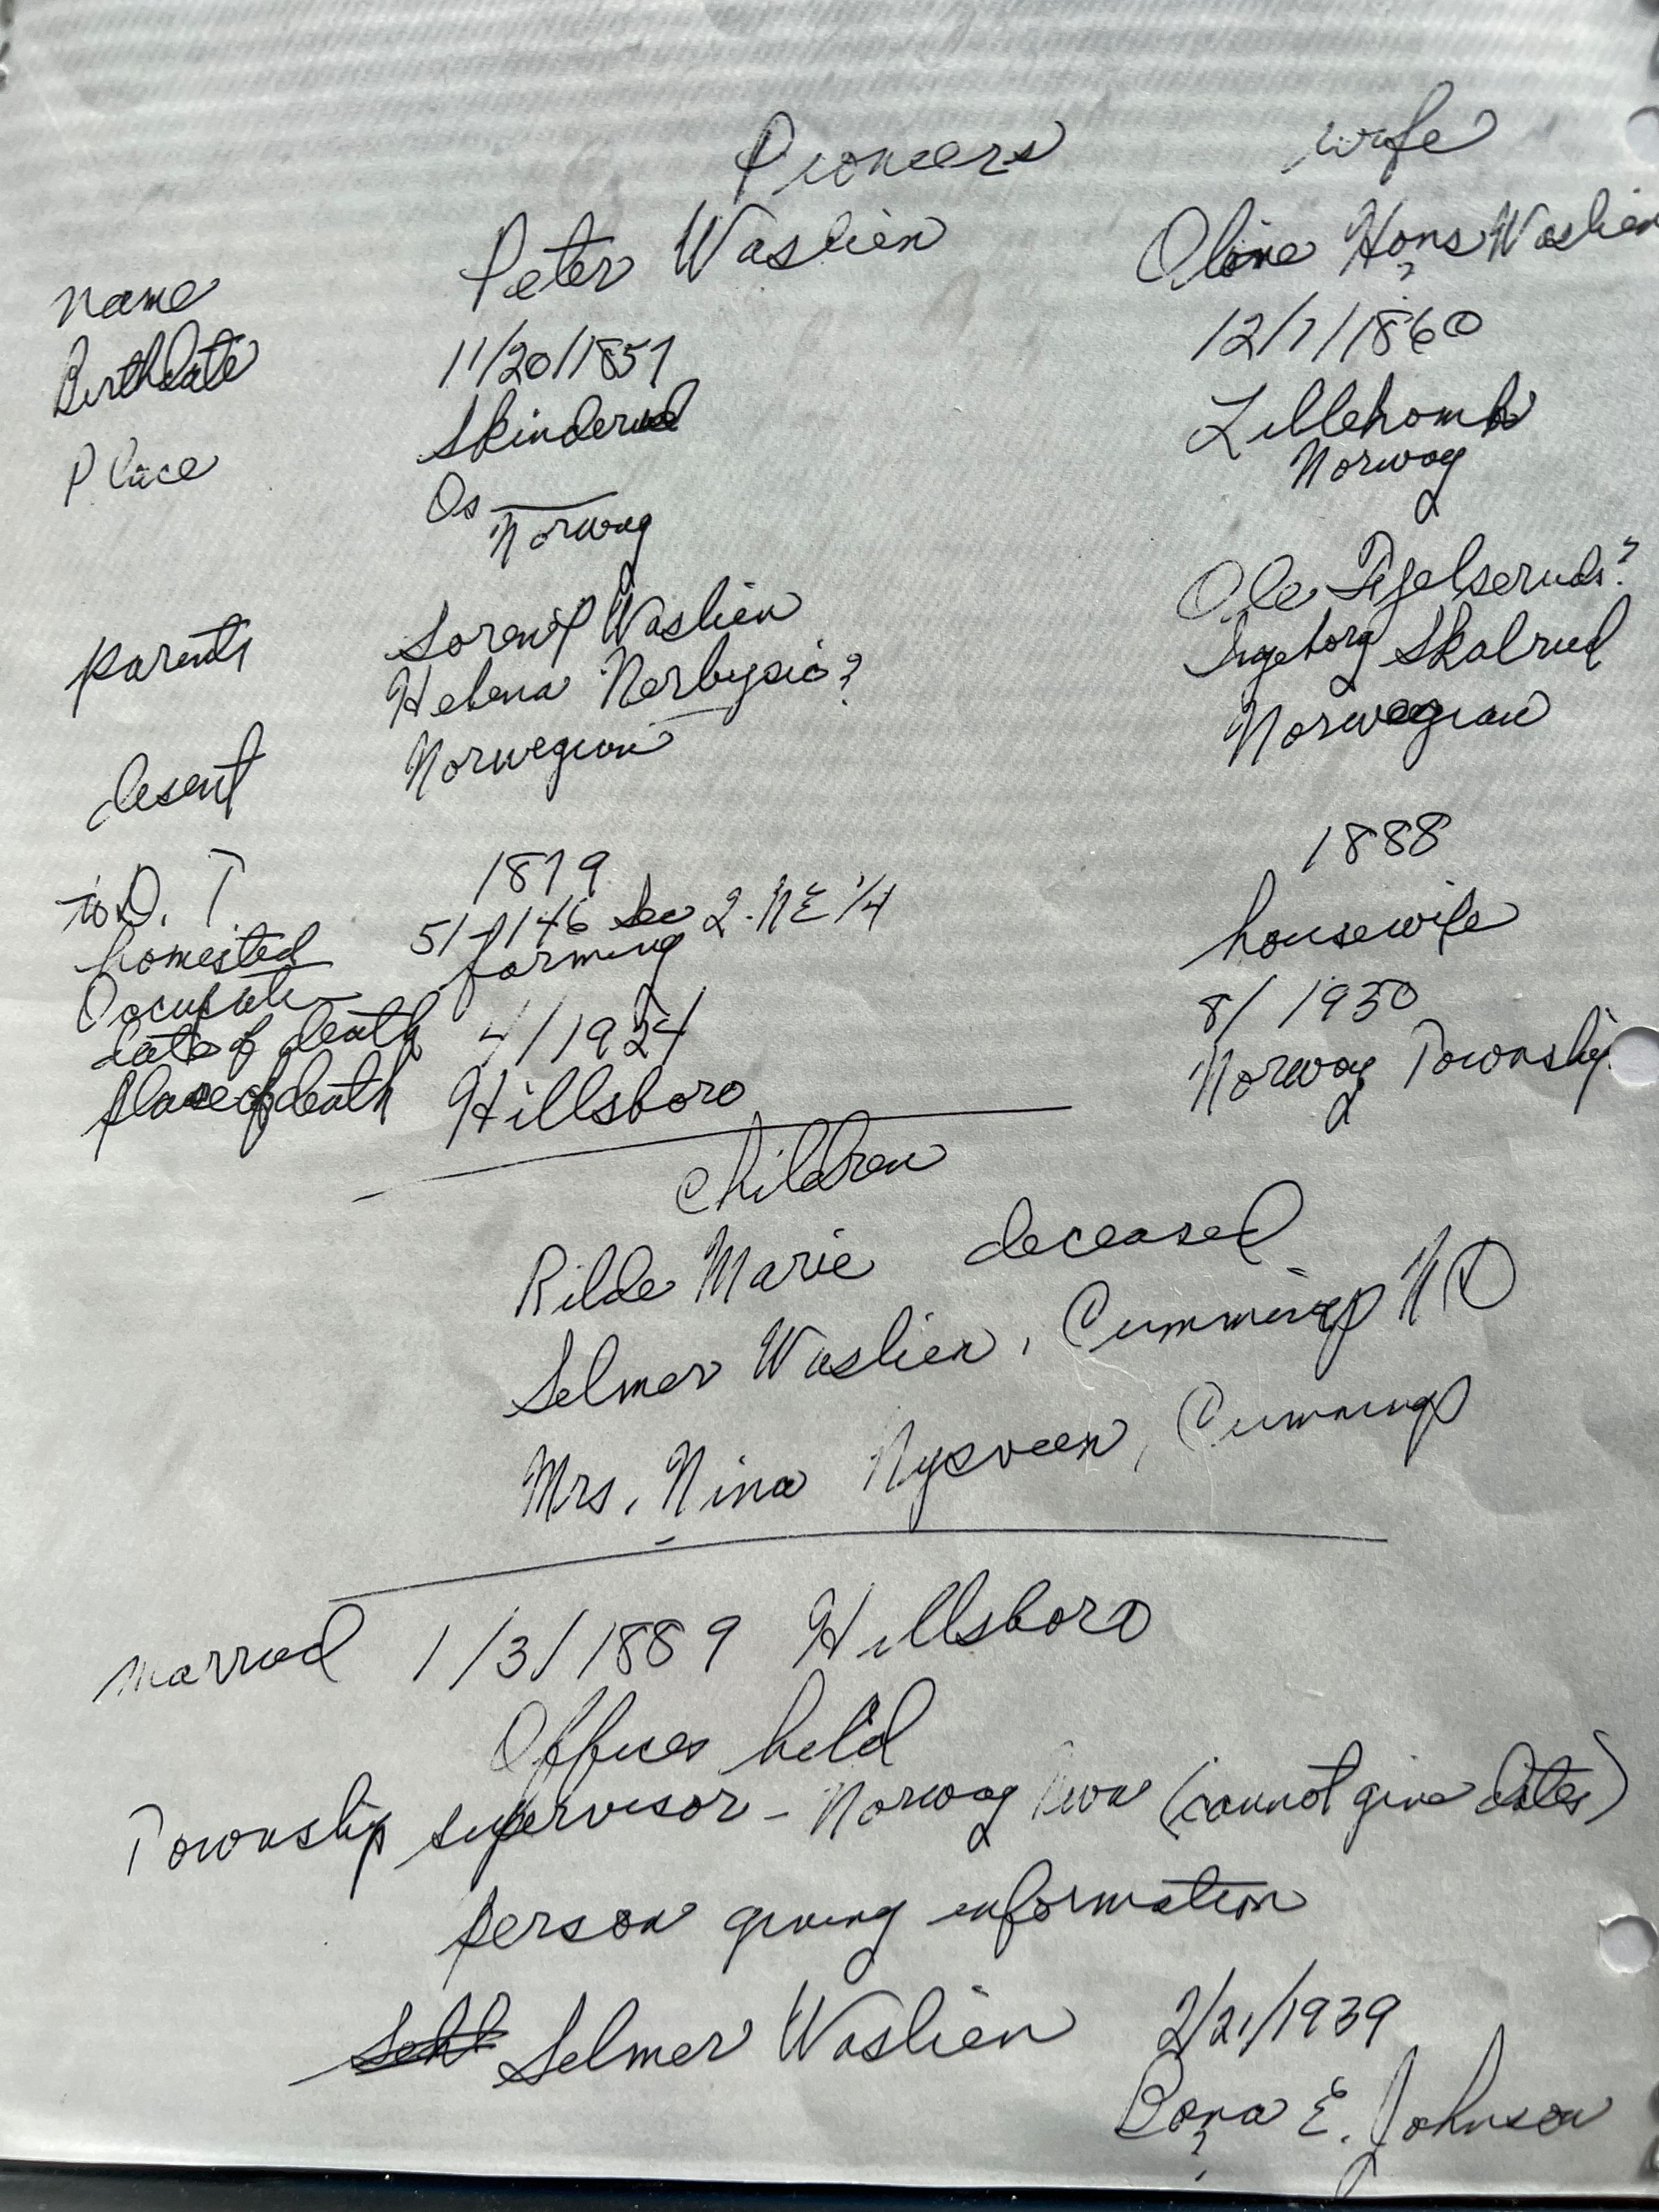 Pioneers wife
Name Peter Waslien Oline Hans Waslien
?
Birthdate 11/20/1857 12/7/1860
Place Skinderud Lillehomb
Os___ Norway
Norway
parents Soren Waslien Ole Tifelseruds?
Helena Norbysio? Ingeborg Skalrud
desent Norwegian Norwegian
to D. T 1879 1888
homested 51-146 Sec 2-NE 1/4
Occupation farming housewife
date of death 4/1924 8/ 1930
place of death Hillsboro Norway Township
Children
Rilde Marie deceased
Selmer Waslien, Cummings ND
Mrs. Nina Nysveen, Cummings
Married 1/3/1889 Hillsboro
Offices held
Township supervisor - Norway Twn (cannot give dates)
person giving information
Selmer Waslien 2/21/1939
Bona E. Johnson
?